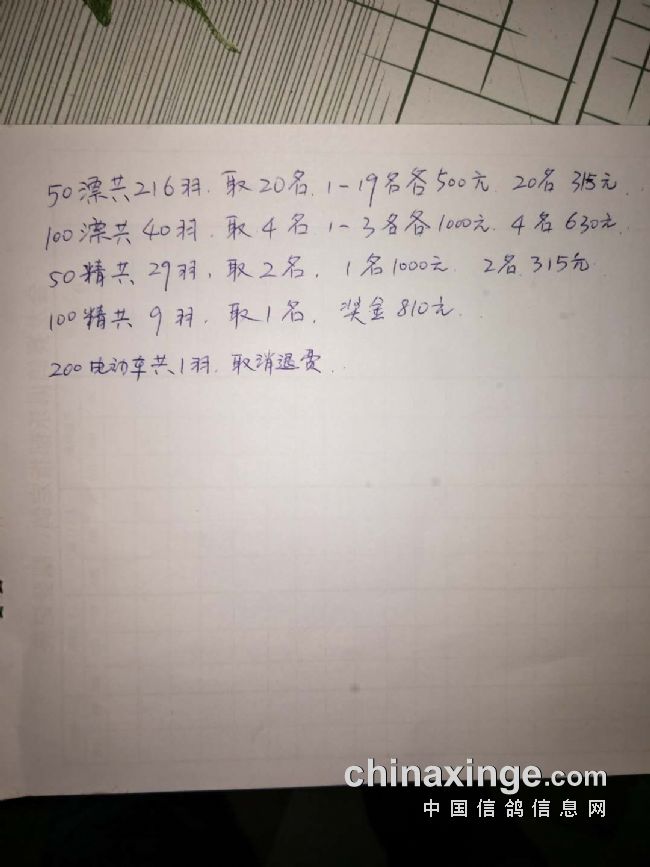 50漂共216羽. 取20名. 1-19名各500元. 20名 315元.
100漂共40羽. 取4名 1-3名各1000元. 4名 630元.
50精共29羽, 取2名, 1名1000元 2名 315元.
100精共9羽. 取1名, 奖金810元.
200电动车共1羽. 取消退费.
chinaxinge.com
中国信鸽信息网